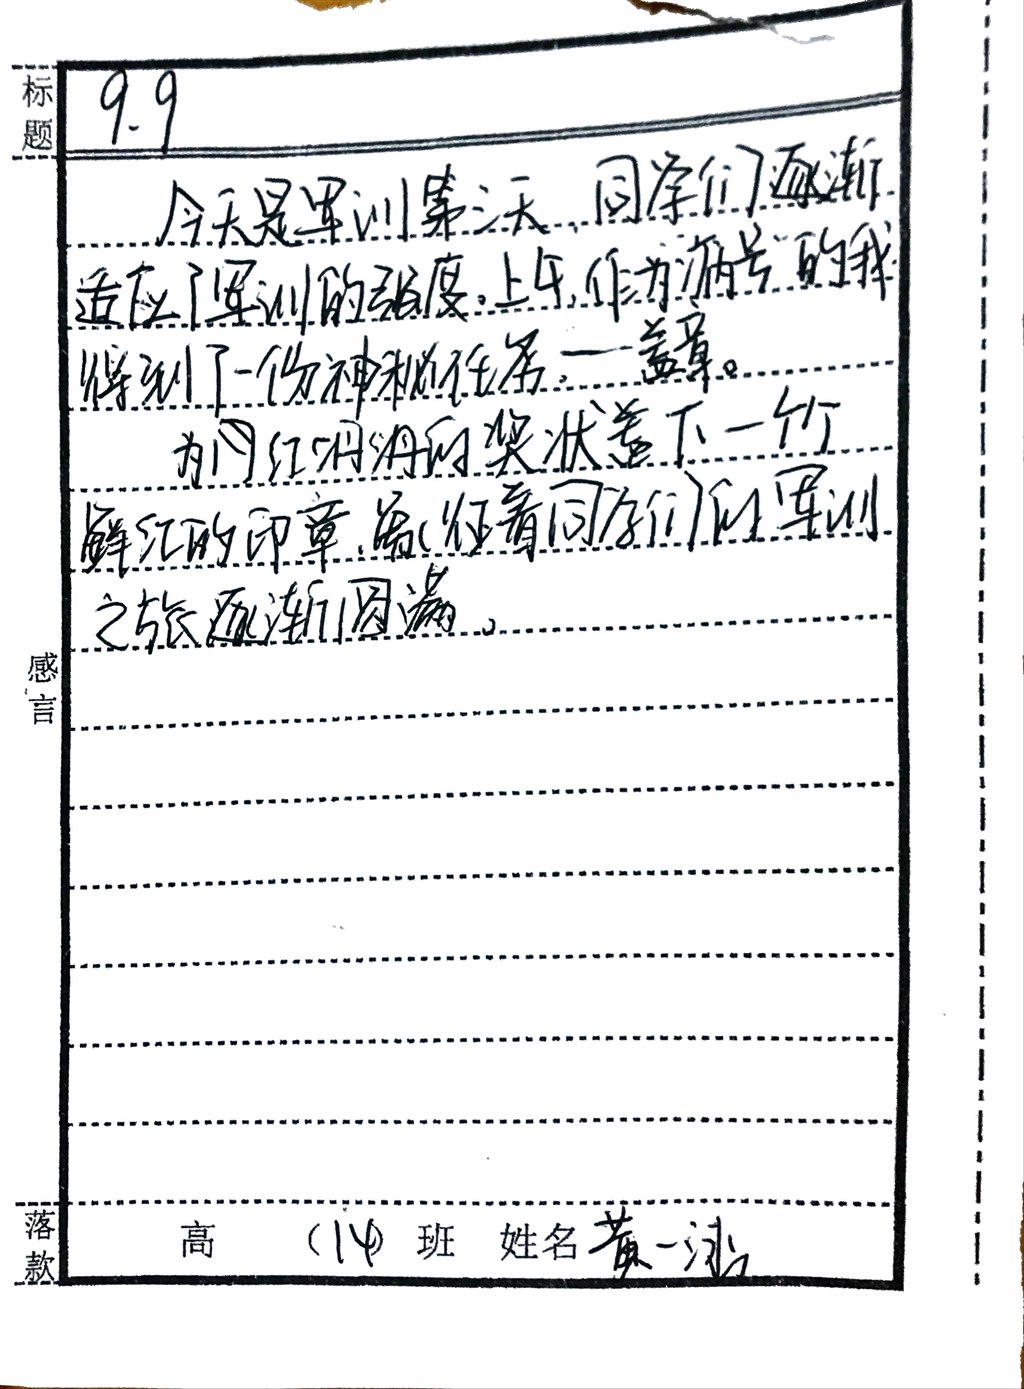 标题
9.9
今天是军训第三天,同学们逐渐
适应了军训的强度。上午,作为"病号"的我
得到了一份神秘任务,——盖章。
为闪红彤彤的奖状盖下一个
鲜红的印章,象征着同学们的军训
之旅逐渐圆满。
感言
落款
高 (14) 班 姓名 黄一